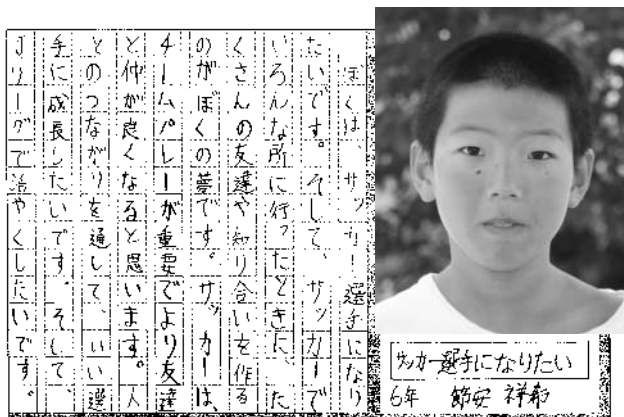 ぼくは、サッカー選手になり
たいです。そして、サッカーで
いろんな所に行ったときに、た
くさんの友達や知り合いを作る
のがぼくの夢です。サッカーは、
チームパレーが重要でより友達
と仲が良くなると思います。人
とのつながりを通して、いい選
手に成長したいです。そして、
Jリーグで活やくしたいです。
サッカー選手になりたい
6年 節安 祥希